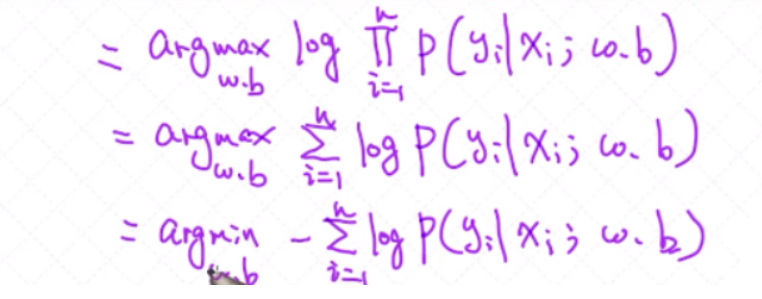 = argmax_{w.b} log ∏_{i=1}^{n} P(y_i|x_i; w.b)
= argmax_{w.b} ∑_{i=1}^{n} log P(y_i|x_i; w.b)
= argmin_{w.b} -∑_{i=1}^{n} log P(y_i|x_i; w.b)